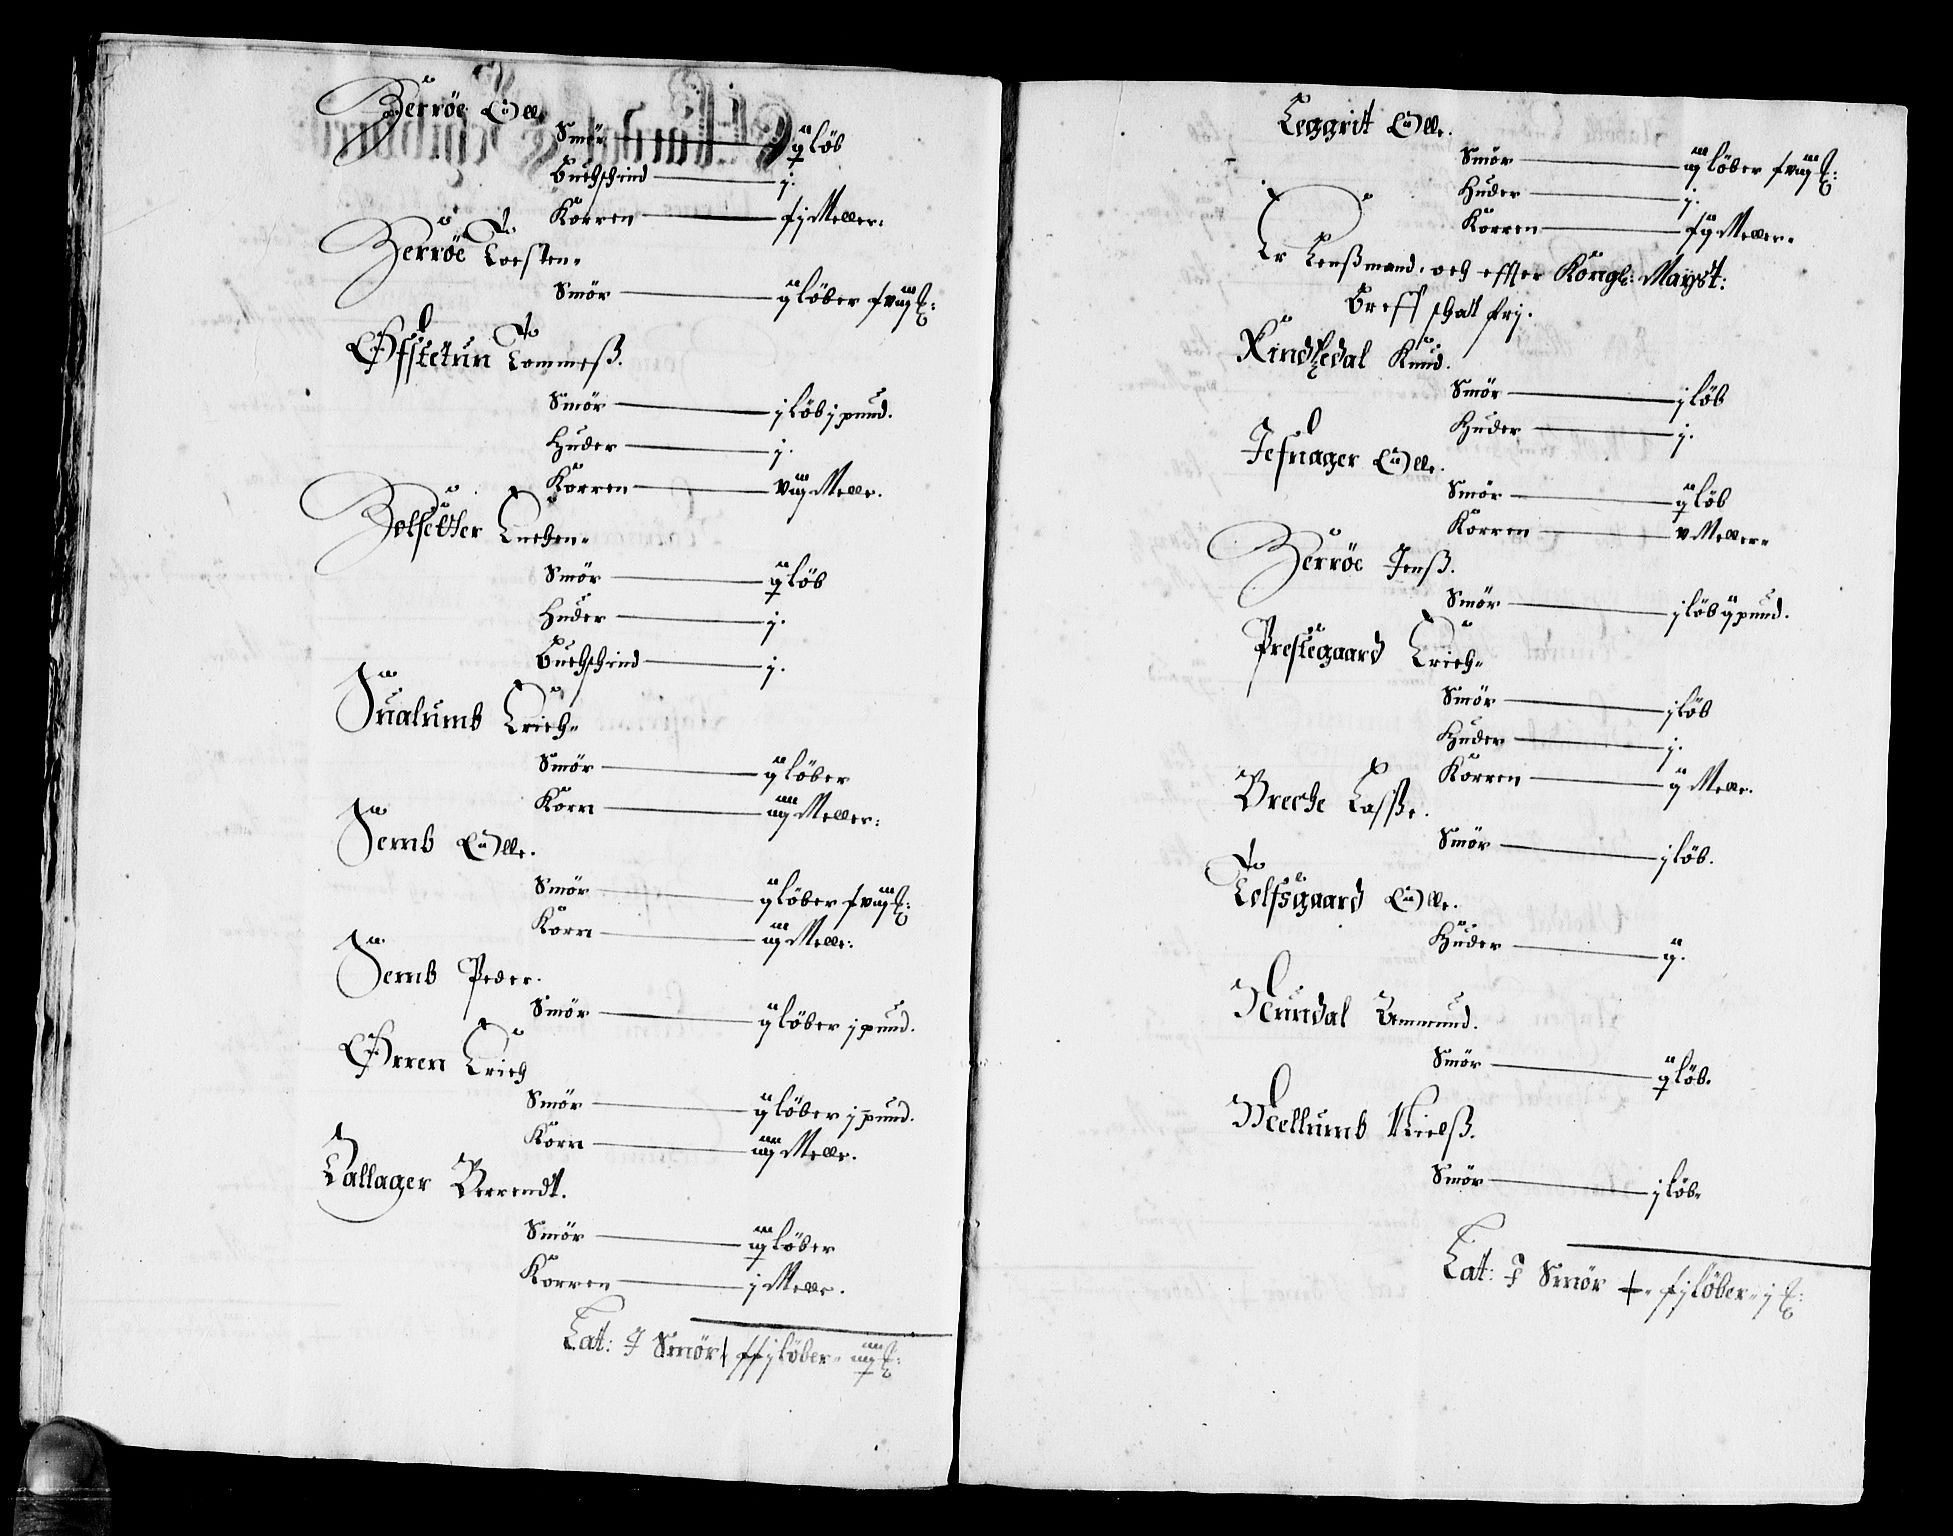 Berröe Olle
Smör — ij löb
Buchschind — j.
Korren — fj Meller:
Berröe Torsten.
Smör — ij löber f viij
Offstetun Tommeß.
Smör — j löb j pund.
Huder — j.
Korren — viij Melle.
Bolsetter Knchen.
Smör — ij löb
Huder — j.
Buchschind — j.
Jualumb Erich.
Smör — ij löber
Korn — iiij Meller:
Jemb Olle.
Smör — ij löber f viij
Korn — iij Melle:
Jemb Peder.
Smör — ij löber j pund.
Orren Erich
Smör — ij löber j pund.
Korn — iiij Melle.
Tallager Berrendt.
Smör — iij löber
Korren — j Melle.
Lat: Smör ffj löber
Leggrit Olle.
Smör — iij löber f viij
Huder — j.
Korren — fij Meller.
Er Lenßmand, och effter Kongl: Mayst:
Breff schatt frj.
Rindtzedal Knud.
Smör — j löb
Huder — j.
Jefnager Olle.
Smör — ij löb
Korren — v Meller.
Berröe Jenß.
Smör — j löb ij pund.
Prestegaard Erich.
Smör — j löb
Huder — j.
Korren — ij Melle.
Breche Laßße.
Smör — j löb.
Tolfsgaard Olle.
Huder — ij.
Nundal Ammund.
Smör — ij löb.
Mellumb Nielß.
Smör — j löb.
Lat: Smör fj löber j